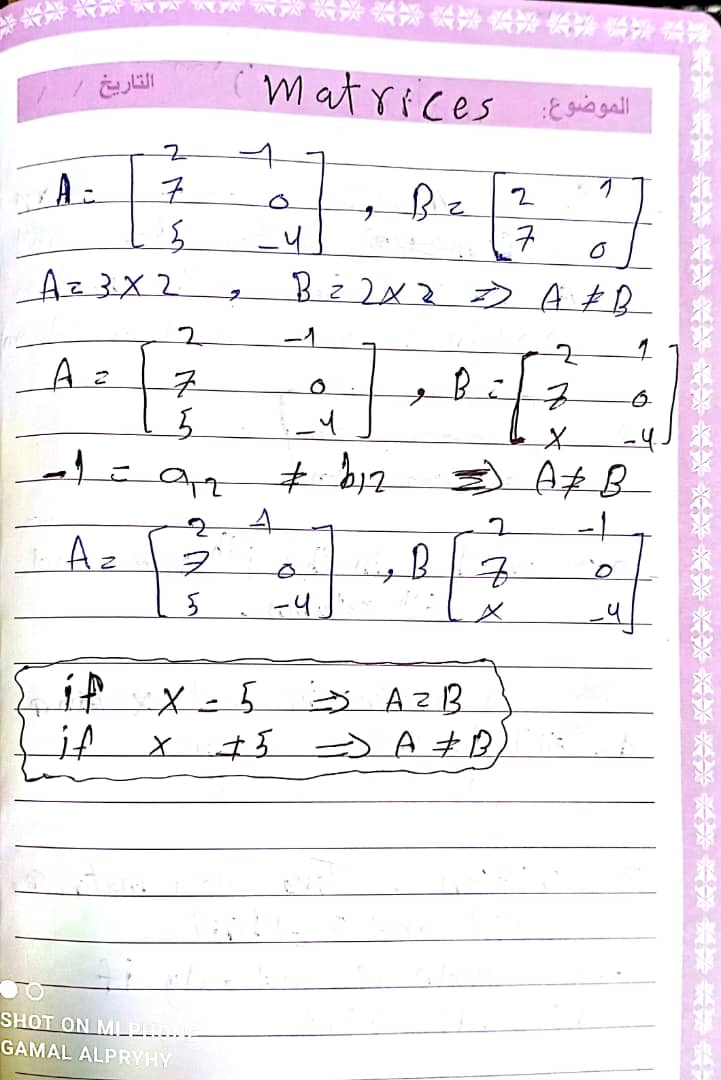 التاريخ / /
الموضوع:
Matrices
A = [2 -1
7 0
5 -4] , B = [2 1
7 0]
A = 3×2 , B = 2×2 ⇒ A ≠ B
A = [2 -1
7 0
5 -4] , B = [2 1
7 0
x -4]
-1 = a12 ≠ b12 ⇒ A ≠ B
A = [2 -1
7 0
5 -4] , B [2 -1
7 0
x -4]
if x = 5 ⇒ A = B
if x ≠ 5 ⇒ A ≠ B
SHOT ON MI PHONE
GAMAL ALPRYHY